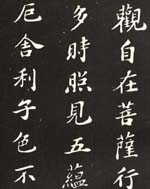 觀自在菩薩行
多時照見五蘊
厄舍利子色不